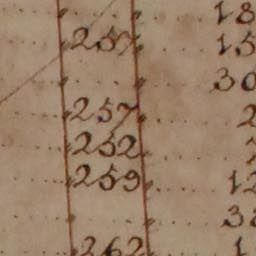 18
257 15
30
257 2
252
259 12
38
262 1